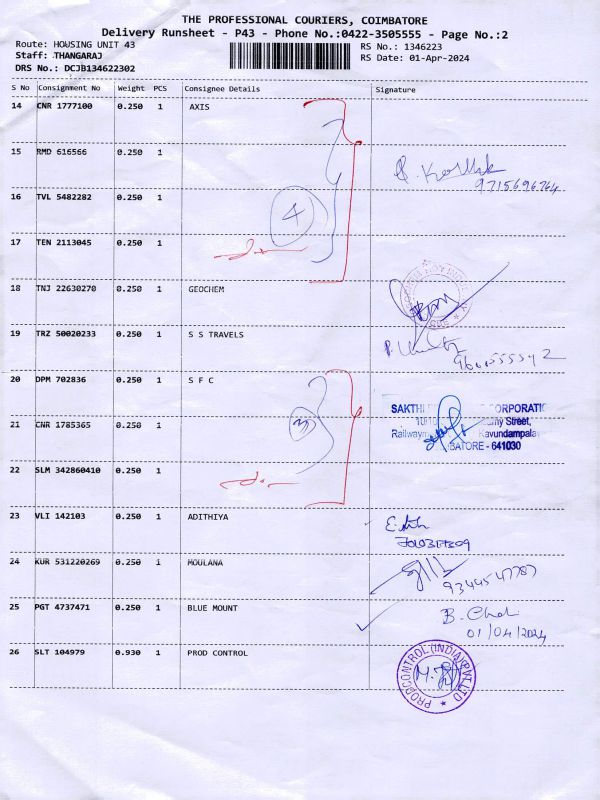 THE PROFESSIONAL COURIERS, COIMBATORE
Delivery Runsheet - P43 - Phone No.:0422-3505555 - Page No.:2
Route: HOUSING UNIT 43
RS No.: 1346223
Staff: THANGARAJ
RS Date: 01-Apr-2024
DRS No.: DCJB134622302
S No Consignment No Weight PCS Consignee Details Signature
14 CNR 1777100 0.250 1 AXIS
15 RMD 616566 0.250 1
9715696764
16 TVL 5482282 0.250 1
4
17 TEN 2113045 0.250 1
18 TNJ 22630270 0.250 1 GEOCHEM
19 TRZ 50020233 0.250 1 S S TRAVELS
20 DPM 702836 0.250 1 S F C
SAKTHI CORPORATION
21 CNR 1785365 0.250 1
3
Street,
Kavundampala
BATORE - 641030
22 SLM 342860410 0.250 1
23 VLI 142103 0.250 1 ADITHIYA
24 KUR 531220269 0.250 1 MOULANA
9344547787
25 PGT 4737471 0.250 1 BLUE MOUNT
01/04/2024
26 SLT 104979 0.930 1 PROD CONTROL
PRODCONTROL (INDIA) PVT LTD